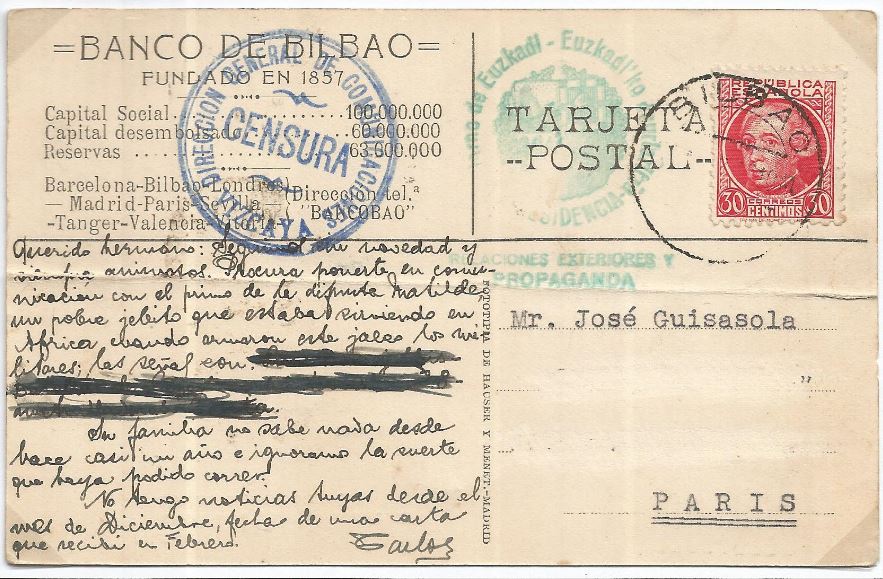 =BANCO DE BILBAO=
FUNDADO EN 1857
Capital Social 100.000.000
Capital desembolsado 60.000.000
Reservas 63.000.000
Barcelona-Bilbao-Londres
— Madrid-Paris-Sevilla —
-Tanger-Valencia-Vitoria-
(Dirección tel.ª
"BANCOBAO")
DIRECCION GENERAL DE COMUNICACIONES
CENSURA
VIZCAYA
de Euzkadi - Euzkadi'ko
RELACIONES EXTERIORES Y
PROPAGANDA
TARJETA
--POSTAL--
REPÚBLICA
ESPAÑOLA
30 CORREOS 30
CENTIMOS
BILBAO
Querido hermano: Seguimos sin novedad y
siempre animosos. Procura ponerte en comu-
nicación con el primo de la difunta Matilde,
un pobre jebito que estaba sirviendo en
Africa cuando armaron este jaleo los mi-
litares; las señas son:
Su familia no sabe nada desde
hace casi un año e ignoramos la suerte
que haya podido correr.
No tengo noticias tuyas desde el
mes de Diciembre, fecha de una carta
que recibí en Febrero.
Carlos
FOTOTIPIA DE HAUSER Y MENET.-MADRID
Mr. José Guisasola
"
PARIS